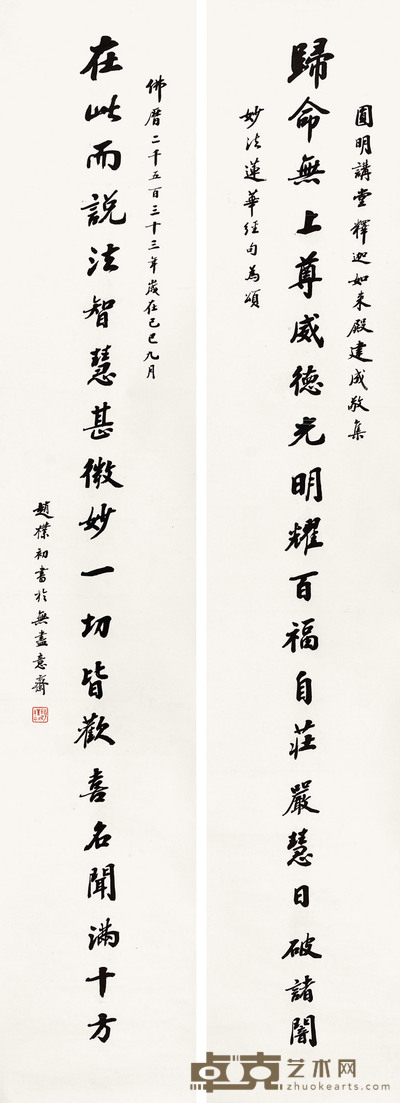 圓明講堂釋迦如来殿建成敬集
歸命無上尊威德光明耀百福自莊嚴慧日破諸闇
妙法蓮華經句為頌
佛曆二千五百三十三年歲在己巳九月
在此而說法智慧甚微妙一切皆歡喜名聞滿十方
趙樸初書於無盡意齋
卓克艺术网
zhuokearts.com